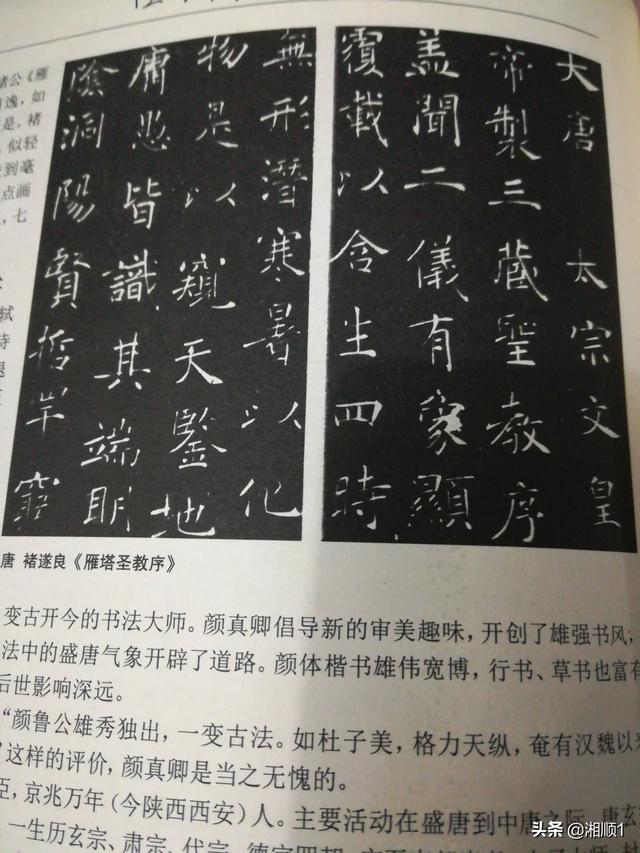 褚公《雁
逸，如
是。褚
似轻
到毫
点画
，七
轼
大唐 太宗文皇
帝製三藏聖教序
盖聞二儀有象顯
覆載以含生四時
無形潛寒暑以化
物是以窺天鑒地
庸愚皆識其端明
陰洞陽賢哲罕窮
唐 褚遂良《雁塔圣教序》
变古开今的书法大师。颜真卿倡导新的审美趣味，开创了雄强书风；
法中的盛唐气象开辟了道路。颜体楷书雄伟宽博，行书、草书也富有
后世影响深远。
“颜鲁公雄秀独出，一变古法。如杜子美，格力天纵，奄有汉魏以来
”这样的评价，颜真卿是当之无愧的。
臣，京兆万年（今陕西西安）人。主要活动在盛唐到中唐之际，唐玄
一生历玄宗、肃宗、代宗、德宗四朝
头条 @湘顺1